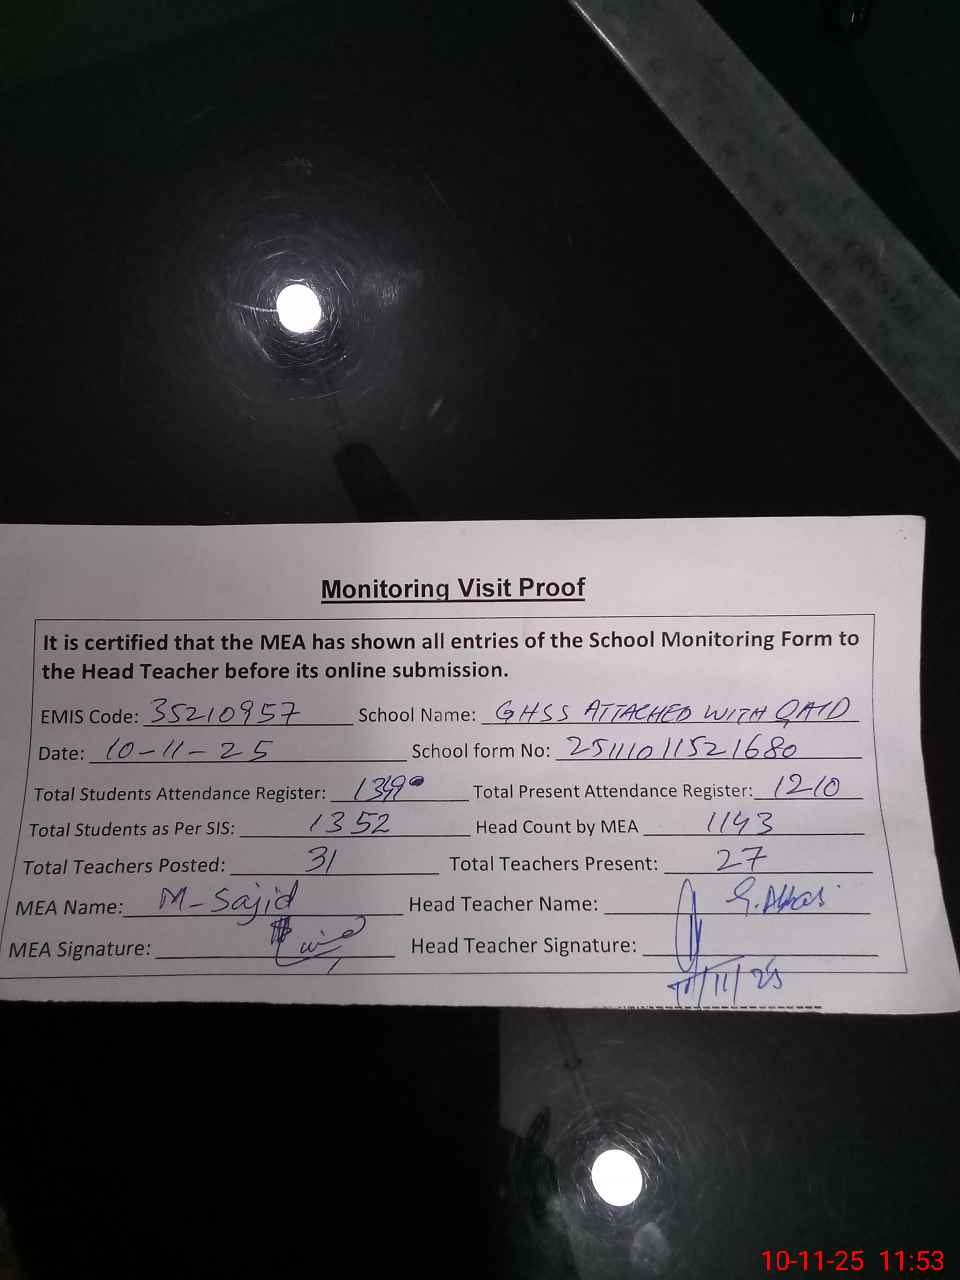 Monitoring Visit Proof
It is certified that the MEA has shown all entries of the School Monitoring Form to
the Head Teacher before its online submission.
EMIS Code: 35210957 School Name: GHSS ATTACHED WITH QAID
Date: 10-11-25 School form No: 2511101152168 0
Total Students Attendance Register: Total Present Attendance Register: 1210
Total Students as Per SIS: 1352 Head Count by MEA 1143
Total Teachers Posted: 31 Total Teachers Present: 27
MEA Name: M-Sajid Head Teacher Name: G.Abbas
MEA Signature: Head Teacher Signature:
10-11-25 11:53